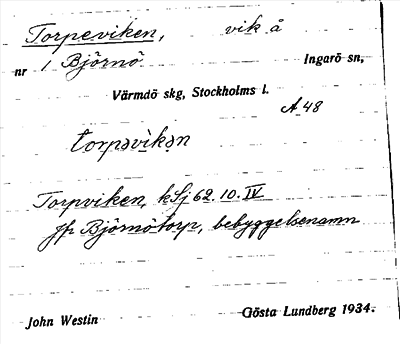 Torpeviken, vik å
nr 1 Björnö Ingarö sn,
Värmdö skg, Stockholms l.
A 48
tɷrpəvìkən
Torpviken, kSj 62.10.IV
Jfr Björnötorp, bebyggelsenamn
John Westin Gösta Lundberg 1934.